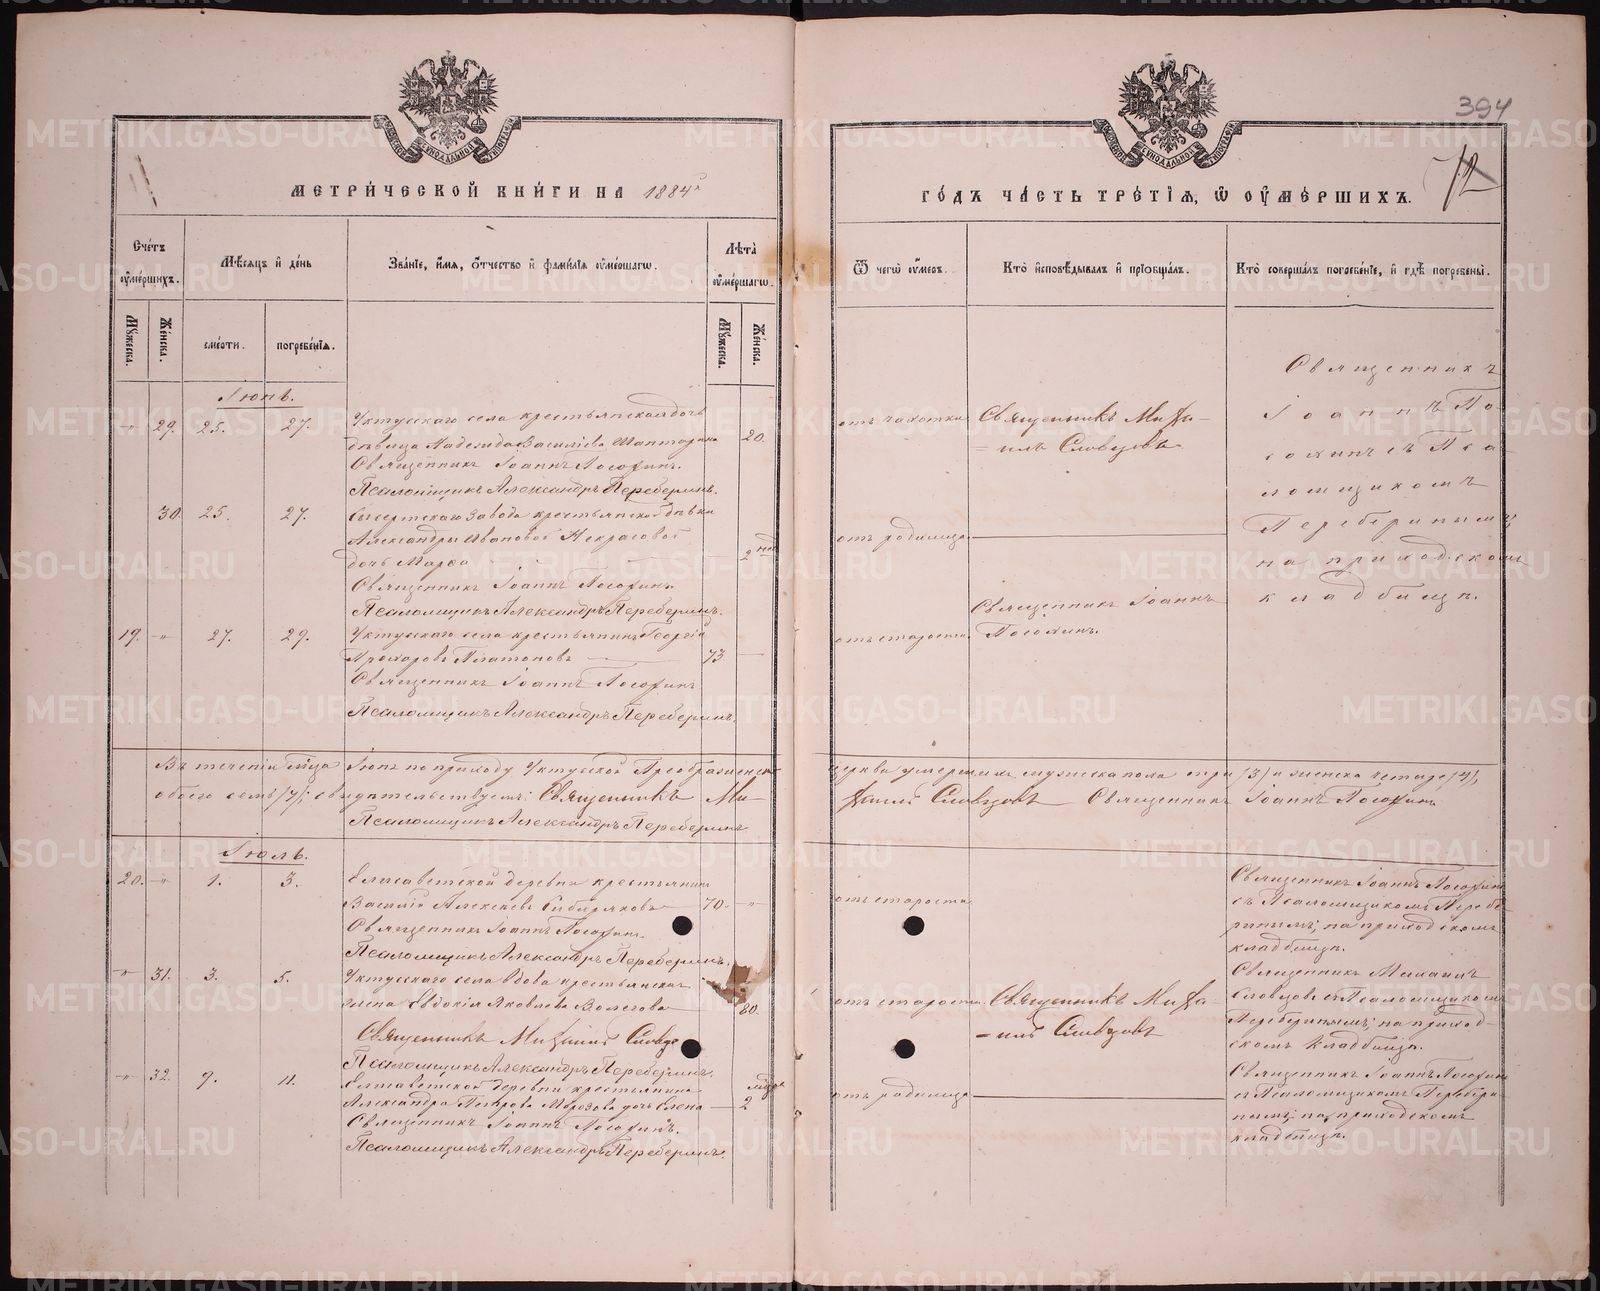 394
72
МЕТРИ́ЧЕСКОЙ КНИ́ГИ НА 1884й
ГО́ДЪ ЧА́СТЬ ТРЕ́ТІЯ, Ѿ ОУМЕ́РШИХЪ.
Счетъ оумершихъ.
Мужеска. Женска.
Мѣсяцъ и день
смерти. погребенія.
Званіе, имя, отчество и фамилія оумершагѡ.
Лѣта оумершагѡ.
Мужеска. Женска.
Ѿ чегѡ оумеръ.
Кто исповѣдывалъ и пріобщалъ.
Кто совершалъ погребеніе, и гдѣ погребены.
Іюнь.
" 29. 25. 27. Уктусскаго села крестьянская дочь
дѣвица Надежда Васильева 20.
Священникъ Іоаннъ Посохинъ.
Псаломщикъ Александръ Переберинъ.
отъ чахотки
Священникъ Миха-
=илъ Словцовъ
Священникъ
Іоаннъ По-
сохинъ съ Пса-
ломщикомъ
Переберинымъ
на приходскомъ
кладбищѣ.
30. 25. 27. Сысертскаго завода крестьянской дѣвки
Александры Ивановой Некрасовой
дочь Марѳа 2 нед
Священникъ Іоаннъ Посохинъ
Псаломщикъ Александръ Переберинъ.
отъ родимца
19. " 27. 29. Уктусскаго села крестьянинъ Георгій
Прохоровъ Платоновъ 73
Священникъ Іоаннъ Посохинъ
Псаломщикъ Александръ Переберинъ.
отъ старости
Священникъ Іоаннъ
Посохинъ.
Въ теченіи м-ца Іюнѣ по приходу Уктусской Преображенской церкви умершихъ мужеска пола три /3/ и женска четыре /4/,
обоего семь /7/; свидѣтельствуемъ: Священникъ Михаилъ Словцовъ Священникъ Іоаннъ Посохинъ
Псаломщикъ Александръ Переберинъ
Іюль.
20. " 1. 3. Елисаветской деревни крестьянинъ
Василій Алексѣевъ Сибиряковъ 70. "
Священникъ Іоаннъ Посохинъ.
Псаломщикъ Александръ Переберинъ.
отъ старости
Священникъ Іоаннъ Посохинъ
съ Псаломщикомъ Перебе-
ринымъ; на приходскомъ
кладбищѣ.
" 31. 3. 5. Уктусскаго села вдова крестьянская
жена Евдокія Яковлева 80.
Священникъ Михаилъ Словцо
Псаломщикъ Александръ Переберинъ.
отъ старости
Священникъ Миха-
=илъ Словцовъ
Священникъ Михаилъ
Словцовъ съ Псаломщикомъ
Переберинымъ; на приход-
скомъ кладбищѣ.
" 32. 9. 11. Елисаветской деревни крестьянина
Александра Петрова Морозова дочь Елена 2 мѣсяца
Священникъ Іоаннъ Посохинъ.
Псаломщикъ Александръ Переберинъ.
отъ родимца
Священникъ Іоаннъ Посохинъ
съ Псаломщикомъ Перебери-
нымъ; на приходскомъ
кладбищѣ.
METRIKI.GASO-URAL.RU